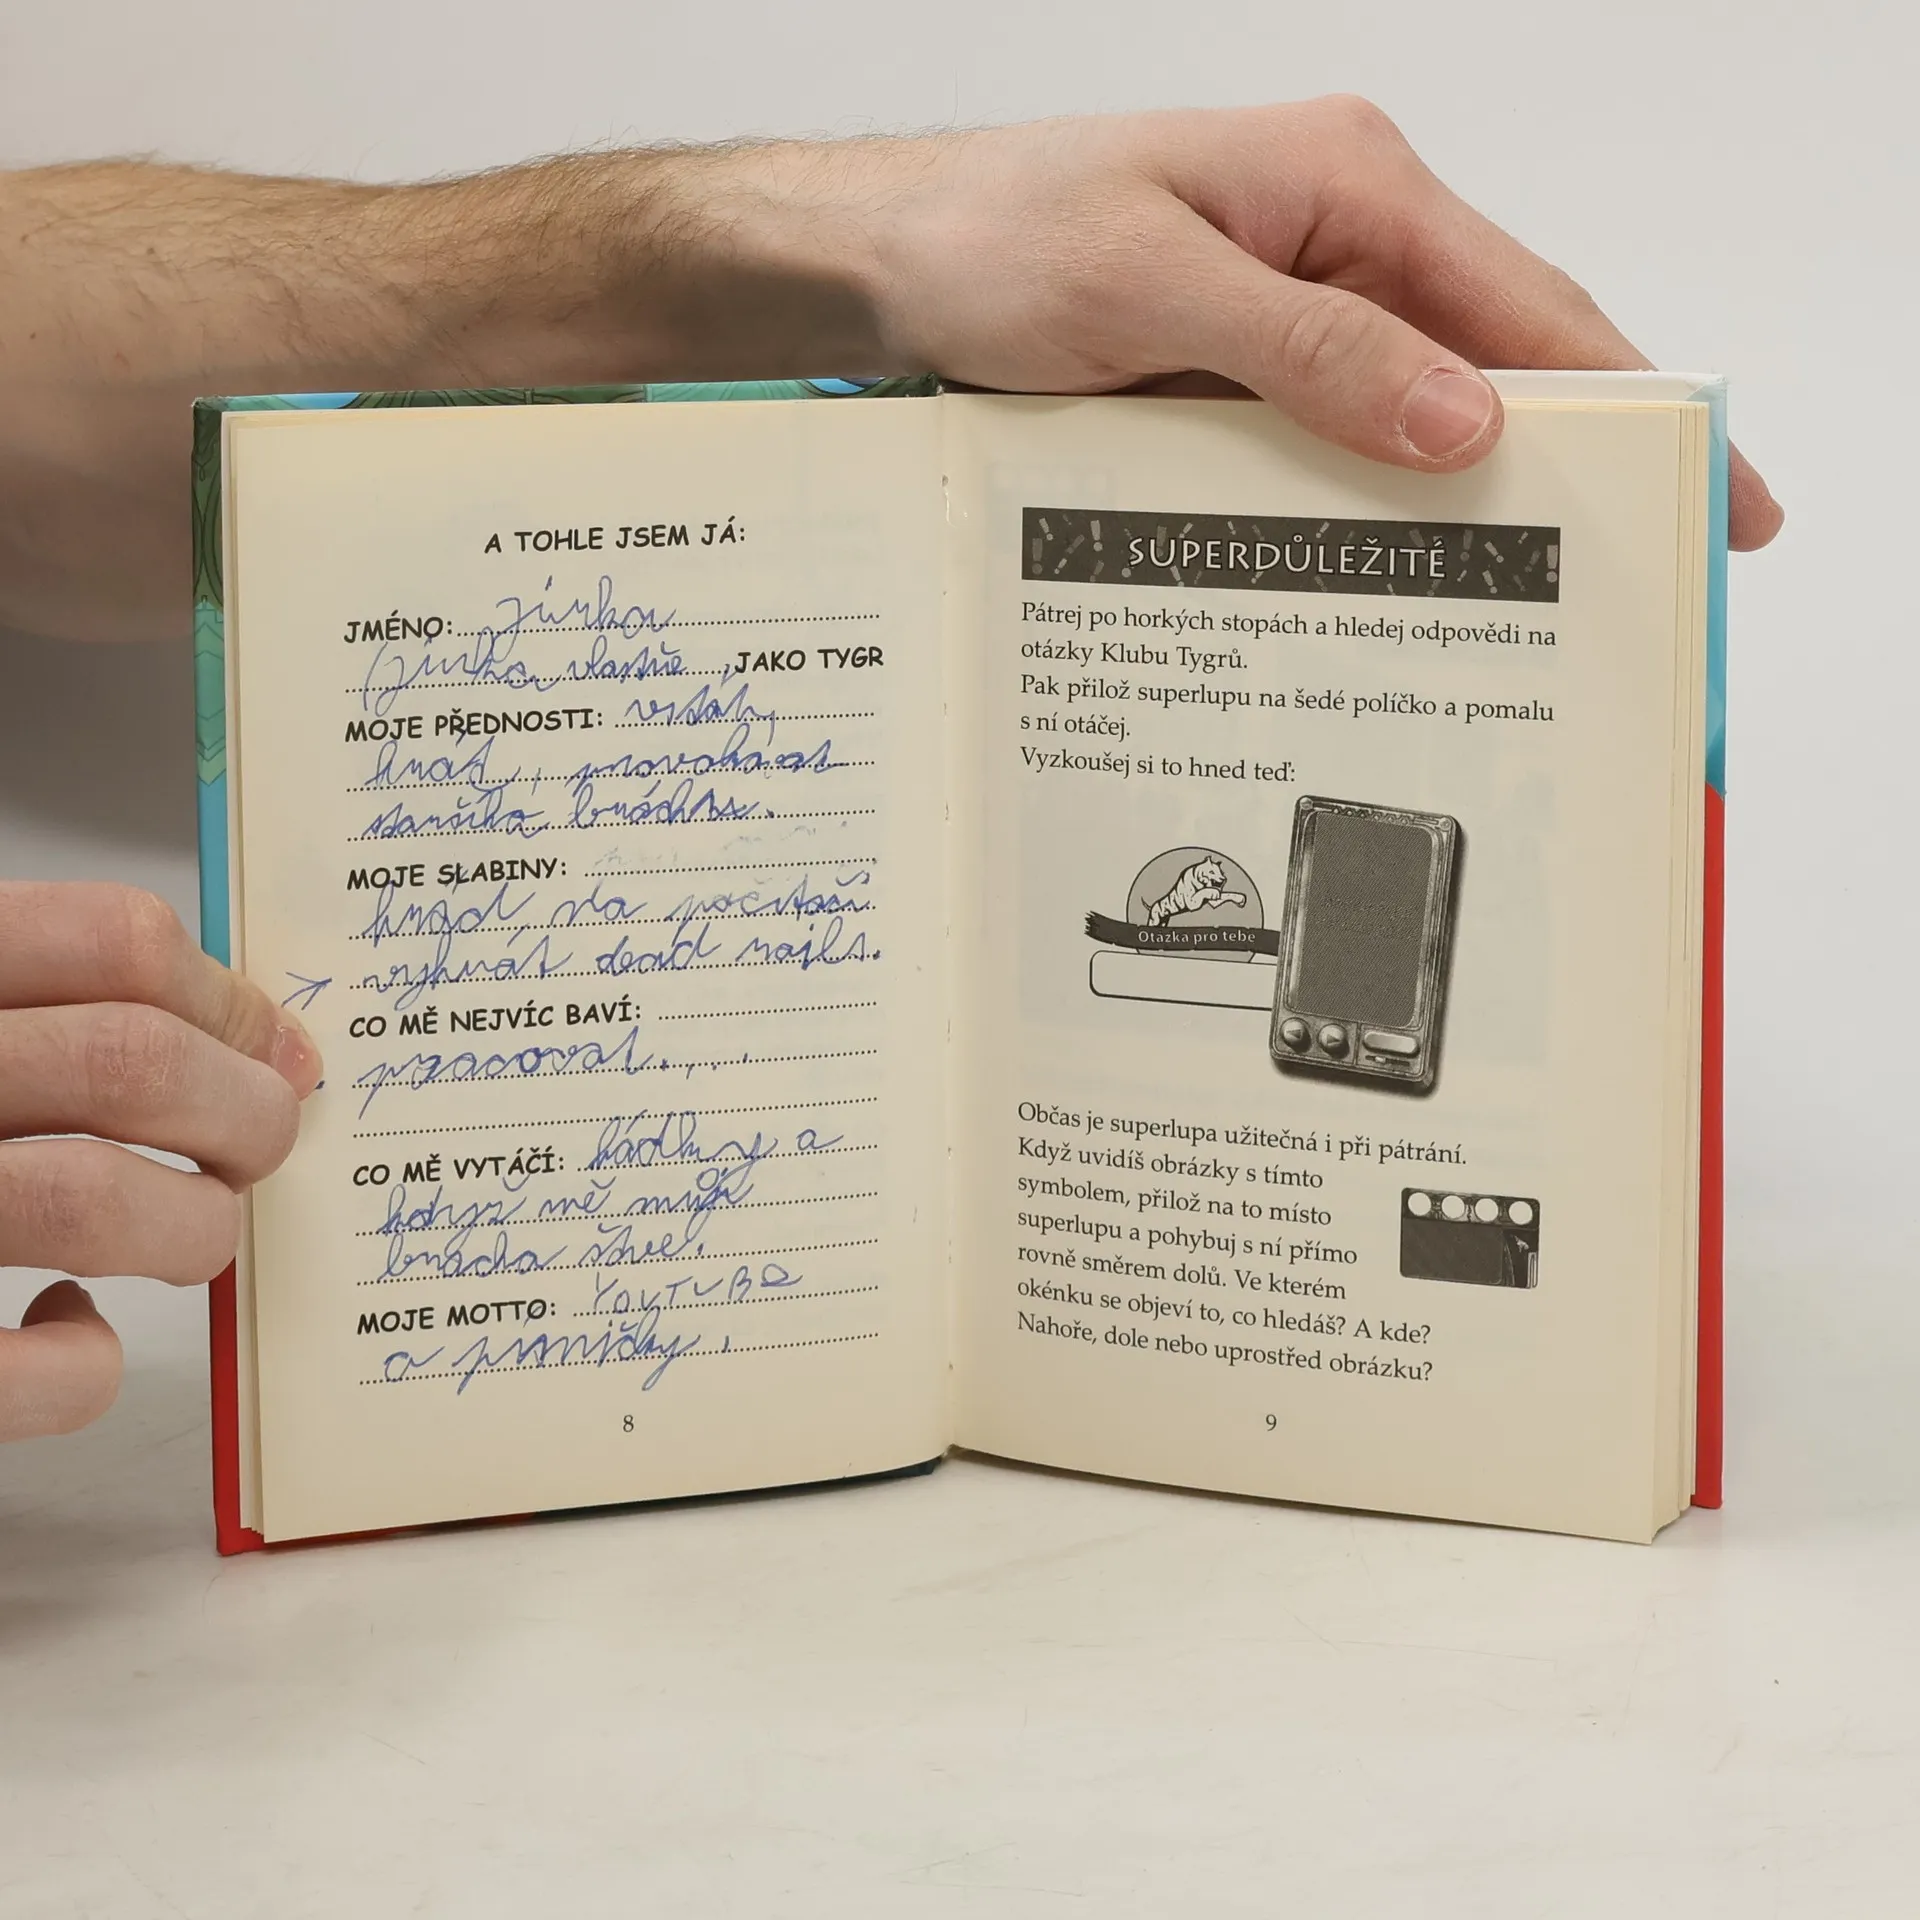 A TOHLE JSEM JÁ:
JMÉNO: Jirka
(jirka vlastňe, JAKO TYGR
MOJE PŘEDNOSTI: vstát,
hrát, provokovat
staršího bráchu.
MOJE SLABINY:
hrád na počítači
vyhrát dead najls.
CO MĚ NEJVÍC BAVÍ:
pracovat....
CO MĚ VYTÁČÍ: hádky a
když mě můj
bracha štve.
MOJE MOTTO: YOUTUBE
a písničky.
8
SUPERDŮLEŽITÉ
Pátrej po horkých stopách a hledej odpovědi na
otázky Klubu Tygrů.
Pak přilož superlupu na šedé políčko a pomalu
s ní otáčej.
Vyzkoušej si to hned teď:
Otázka pro tebe
Občas je superlupa užitečná i při pátrání.
Když uvidíš obrázky s tímto
symbolem, přilož na to místo
superlupu a pohybuj s ní přímo
rovně směrem dolů. Ve kterém
okénku se objeví to, co hledáš? A kde?
Nahoře, dole nebo uprostřed obrázku?
9